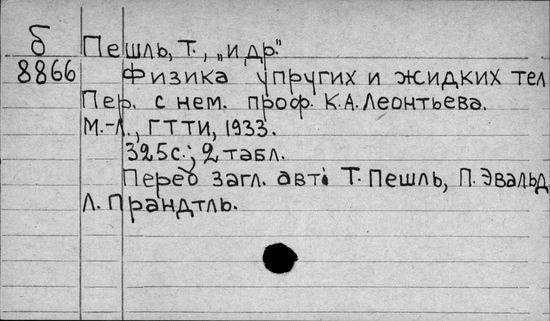 б Пешль, Т., „и др."
8866 Физика упругих и жидких тел
Пер. с нем. проф. К.А.Леонтьева.
М.-Л., ГТТИ, 1933.
325с.; 2 табл.
Перед загл. авт: Т. Пешль, П. Эвальд,
Л. Прандтль.